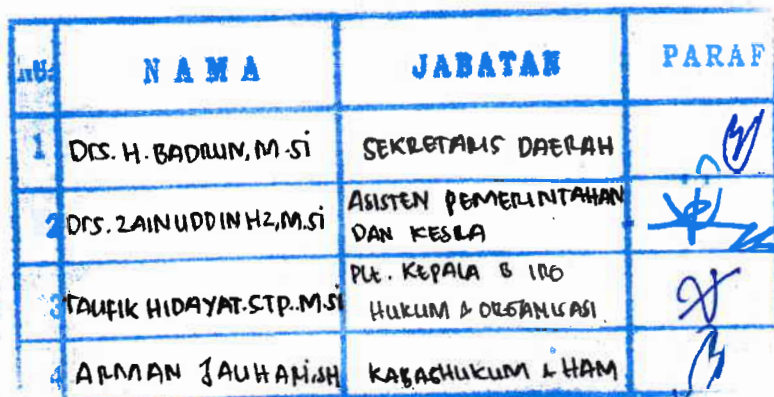 NO. NAMA JABATAN PARAF
1 Drs. H. BADRUN, M.Si SEKRETARIS DAERAH
2 Drs. ZAINUDDIN HZ, M.Si ASISTEN PEMERINTAHAN
DAN KESRA
3 TAUFIK HIDAYAT.STP..M.Si PLt. KEPALA BIRO
HUKUM & ORGANISASI
4 ARMAN JAUHARI.SH KABAGHUKUM & HAM